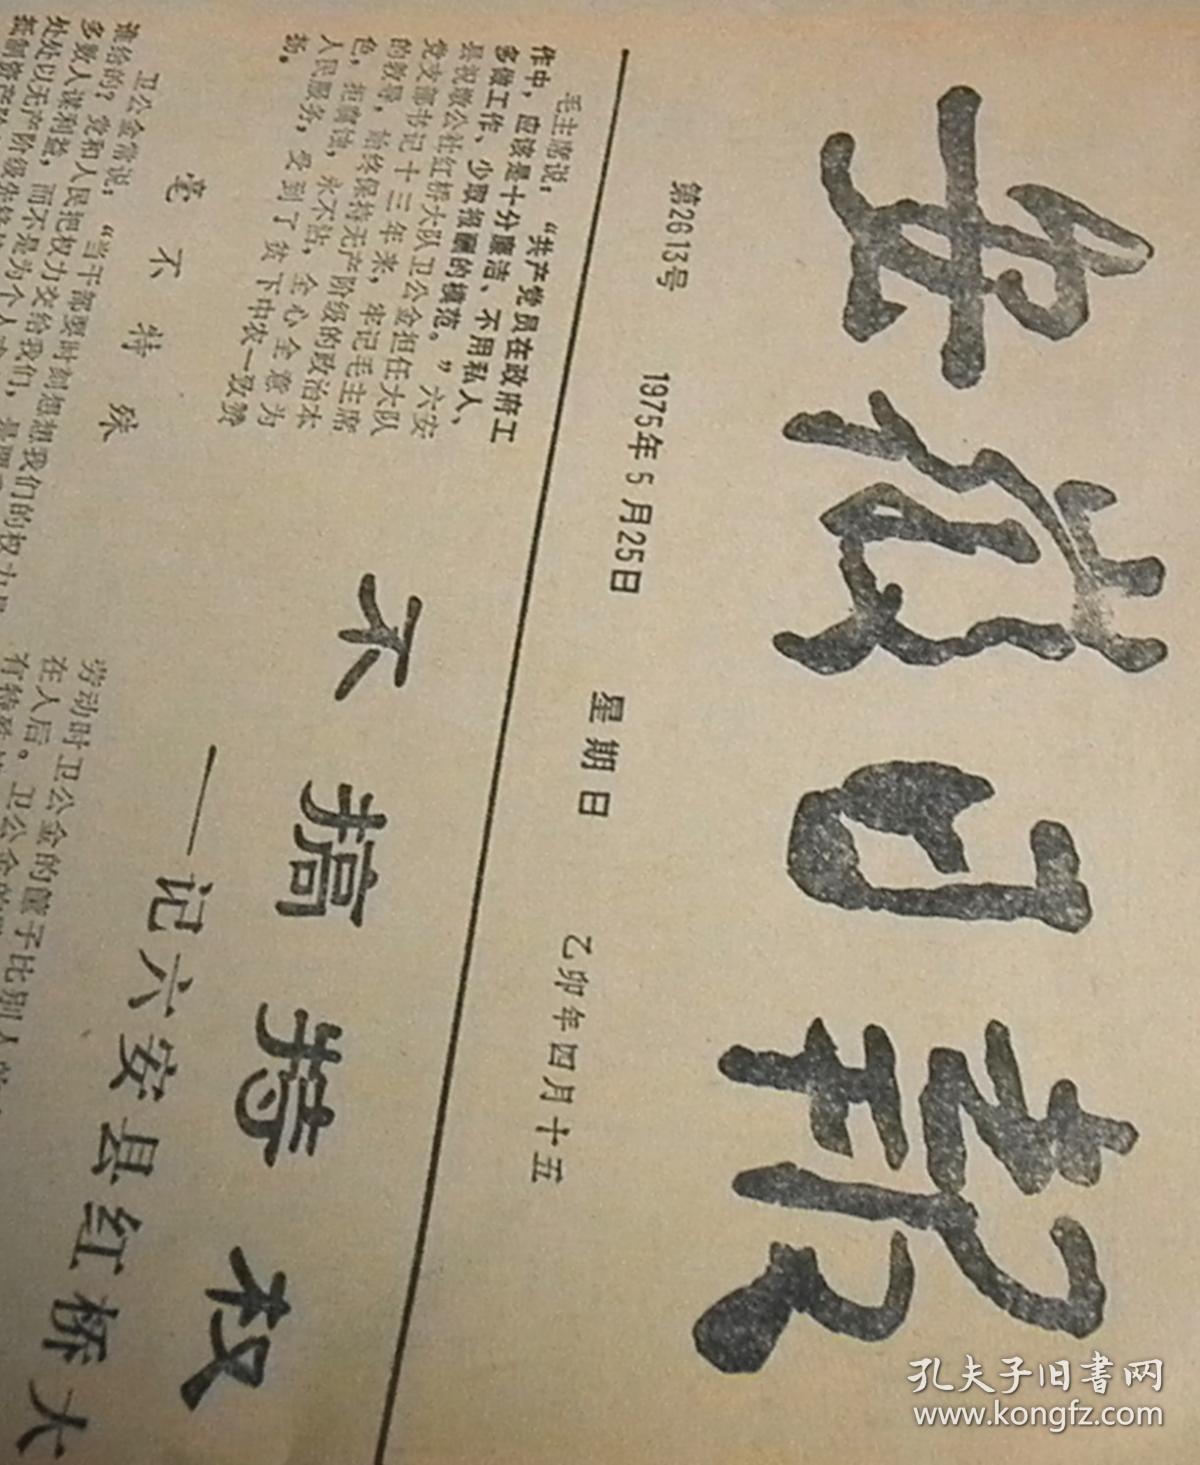 安徽日报
第2613号 1975年5月25日 星期日 乙卯年四月十五
毛主席说：“共产党员在政府工
作中，应该是十分廉洁、不用私人、
多做工作、少取报酬的模范。”六安
县祝墩公社红桥大队卫公金担任大队
党支部书记十三年来，牢记毛主席
的教导，始终保持无产阶级的政治本
色，拒腐蚀，永不沾，全心全意为
人民服务，受到了贫下中农一致赞
扬。
不搞特权
——记六安县红桥大
毫不特殊
卫公金常说：“当干部要时刻想想我们的权力是
谁给的？党和人民把权力交给我们，是要
多数人谋利益，而不是为个人
处处以无产阶级先锋
抵制资产阶级
劳动时卫公金的鞭子比别人
在人后。卫公金
有特殊
孔夫子旧书网
www.kongfz.com